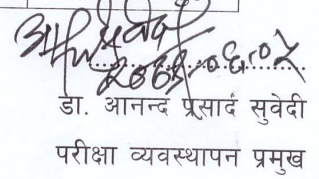 डा. आनन्द प्रसाद सुवेदी
परीक्षा व्यवस्थापन प्रमुख